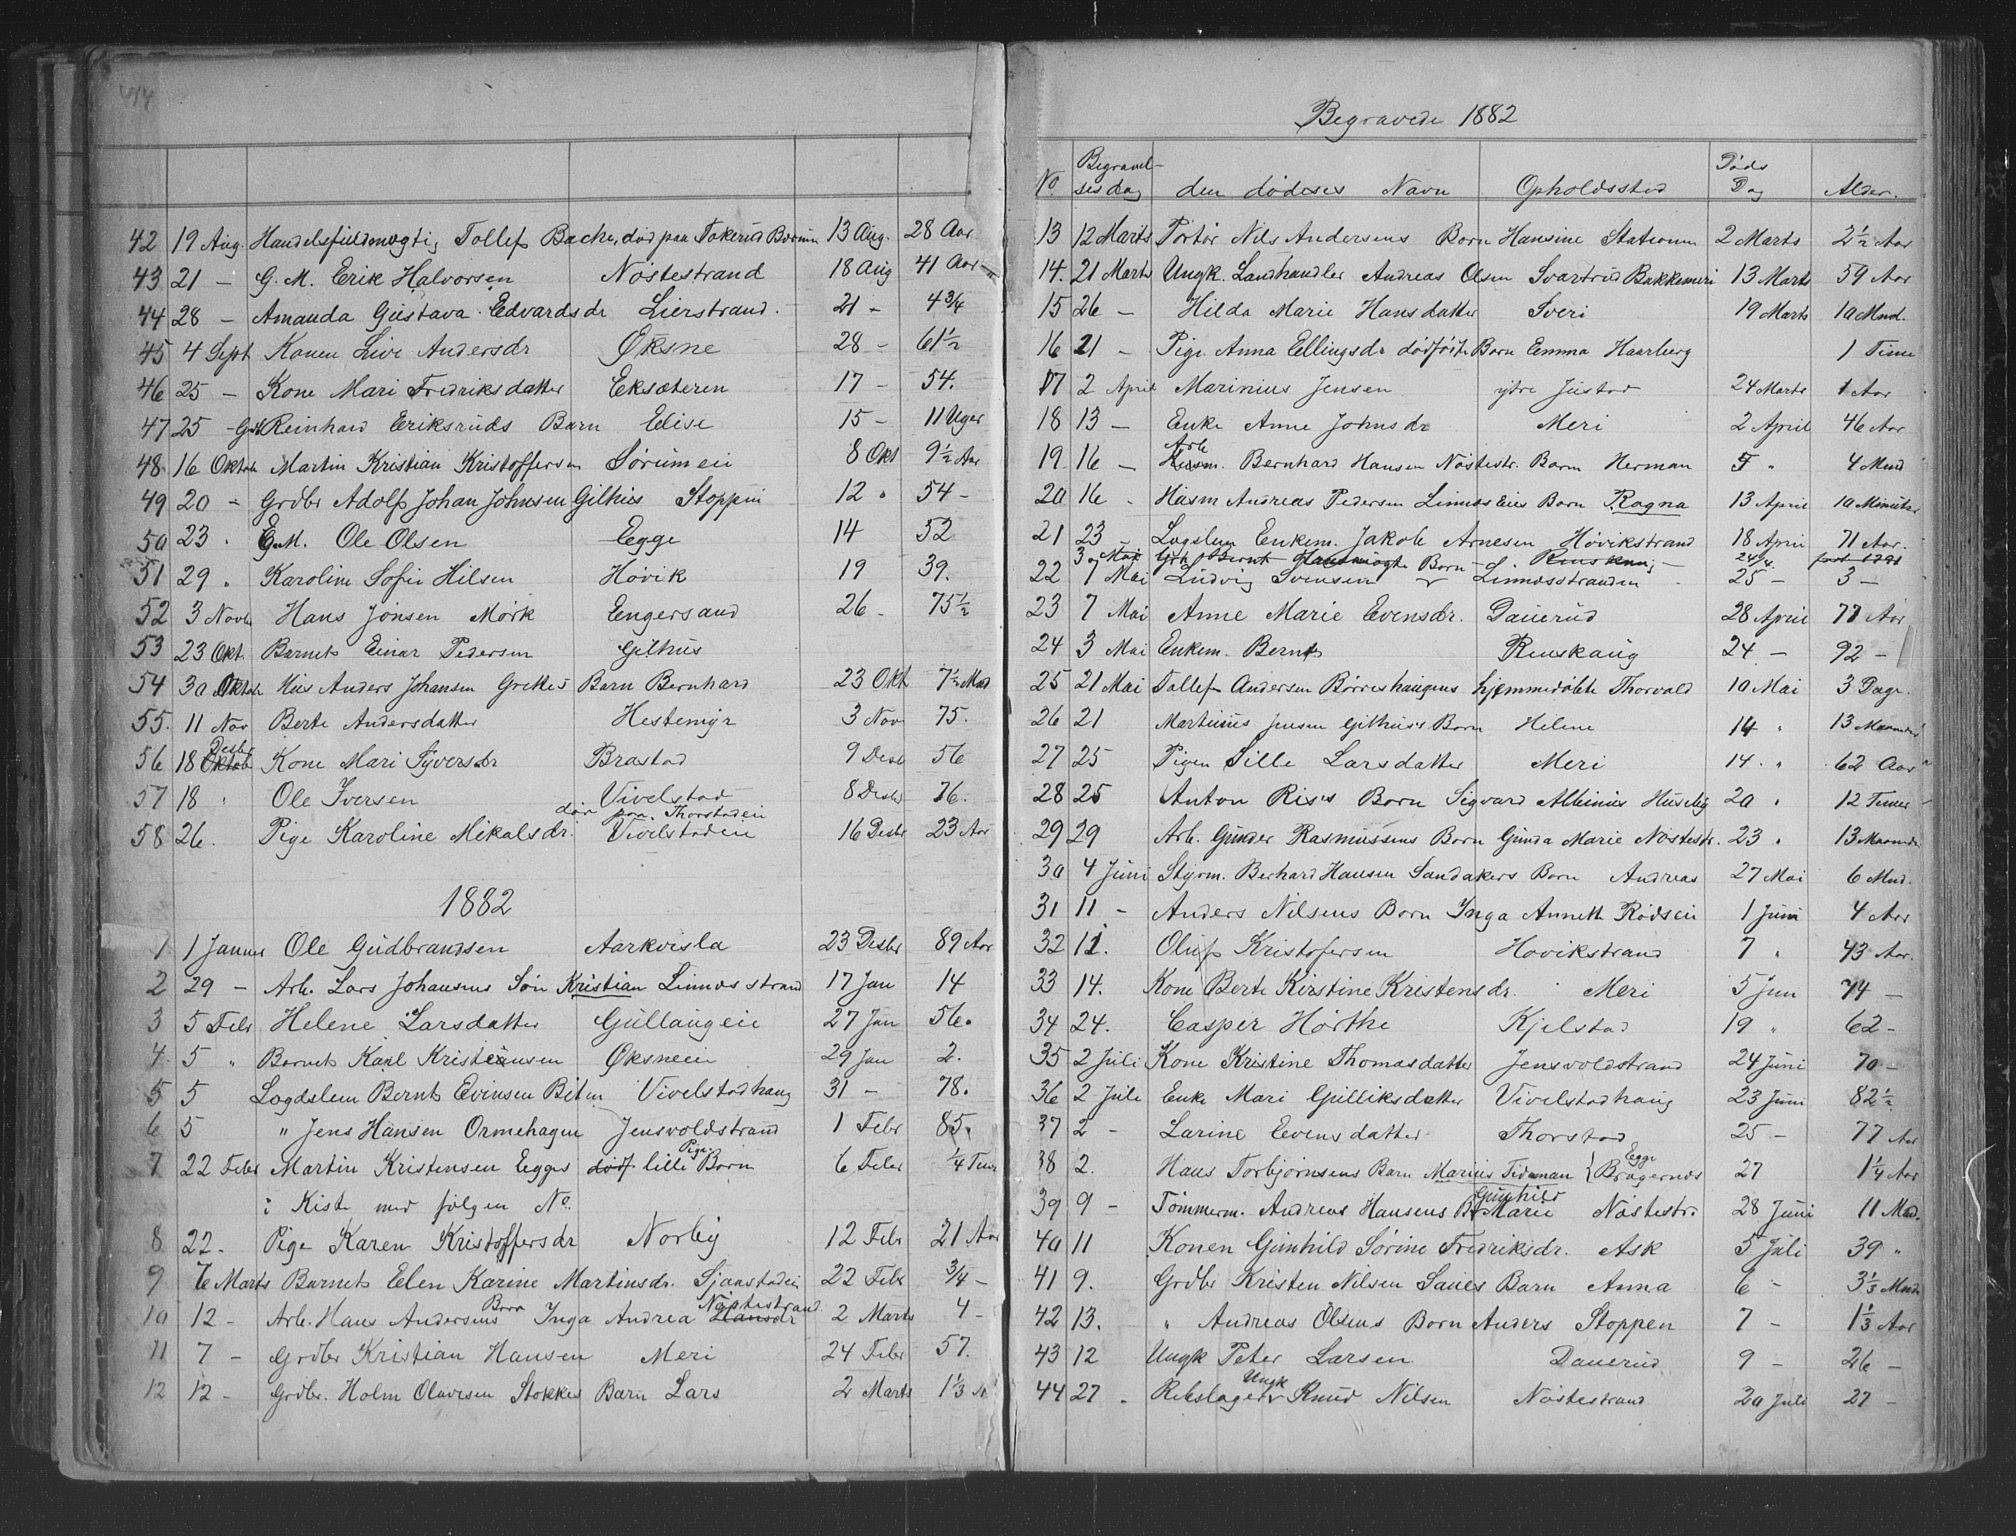 42 19 Aug. Handelsfuldmægtig Tollef Bache, død paa Tokerud Bærum 13 Aug. 28 Aar
43 21 – G. M. Erik Halvorsen Nøstestrand 18 Aug 41 Aar
44 28 – Amanda Gustava Edvardsdr Lierstrand. 21 – 4 3/4
45 4 Sept Konen Live Andersdr Øksne 28 – 61 1/2
46 25 – Kone Mari Fredriksdatter Eksæteren 17 – 54.
47 25 – Reinhard Eriksruds Barn Elise 15 – 11 Uger
48 16 Oktob Martin Kristian Kristoffersen Sørumeie 8 Okt 9 1/2 Aar
49 20 – Grdbr Adolf Johan Johnsen Gilhus Stoppen 12 " 54 –
50 23 . G.M. Ole Olsen Egge 14 52
51 29 " Karoline Sofie Hilsen Høvik 19 39.
52 3 Novb Hans Jonsen Mørk Engersand 26 – 75 1/2
53 23 Okt. Barnet Einar Pedersen Gilhus
54 30 Oktob Hus Anders Johansen Grettes Barn Bernhard 23 Okt 7 1/2 Mnd
55. 11 Nov Berte Andersdatter Hestemyr 3 Nov 75.
56 18 Desbr Kone Mari Syversdr Brastad 9 Desb 56
57 18 " Ole Iversen Vivelstad 8 Desbr 76.
død paa Thorstadeie
58 26. Pige Karoline Mikalsdr. Vivelstadeie 16 Desbr 23 Aar
1882
1 1 Januar Ole Gudbrandsen Aarkvisla 23 Desbr 89 Aar
2 29 – Arb. Lars Johansens Søn Kristian Linnesstrand 17 Jan 14
3 5 Febr Helene Larsdatter Gullaugeie 27 Jan 56.
4 5 " Barnet Karl Kristiansen Øksneeie 29 Jan 2.
5 5 Logdslem Bernt Evensen Biten Vivelstadhaug 31 – 78.
6 5 " Jens Hansen Ormehagen Jensvoldstrand 1 Febr 85.
7 22 Febr Martin Kristensen Egges død lille Pige Barn 6 Febr 1/4 Time
i Kiste med følgen No.
8 22. Pige Karen Kristoffersdr Norby 12 Febr 21 Aar
9 6 Marts Barnet Elen Karine Martinsdr. Sjaastadeie 22 Febr 3/4 –
10 12 – Arb. Hans Andersens Barn Inga Andrea Hansdr Nøstestrand 2 Marts 4 –
11 7 – Grdbr Kristian Hansen Meri 24 Febr 57.
12 12 – Grdbr. Holm Olavesen Stokkes Barn Lars 2 Marts 1 1/3 A
Begravede 1882
No. Begravelsesdag den dødes Navn Opholdssted Døds Dag Alder.
13 12 Marts Portør Nils Andersens Barn Hansine Stationen 2 Marts 2 1/2 Aar
14. 21 Marts Ungk. Landhandler Andreas Olsen Svartrud Bakkemeri 13 Marts 59 Aar
15 26 – Hilda Marie Hansdatter Sveri 19 Marts 10 Mnd.
16 21 – Pige Anna Ellingsdr dødfødte Barn Emma Haarberg 1 Time
17 2 April Marinius Jensen ydre Justad 24 Marts 1 Aar
18 13 – Enke Anne Johnsdr Meri 2 April 46 Aar
19 16 – Arb Husm. Bernhard Hansen Nøstestr. Barn Herman 5 " 4 Mnd
20 16 – Husm Andreas Pedersen Linnes Eies Barn Ragna 13 April 10 Minuter
21 23 Logslem Enkem. Jakob Arnesen Høvikstrand 18 April 71 Aar.
3 Mai Bernt Renskaug 24/4
22 7 Mai Ludvig Svensen Barn Linnesstranden 25 – 3 –
23 7 Mai Anne Marie Evensdr. Dauerud 28 April 77 Aar
24 3 Mai Enkem. Bernt Renskaug 24 – 92 –
25 21 Mai Tollef Andersen Børreshaugens hjemmedøbte Thorvald 10 Mai 3 Dage.
26 21 Martinius Jensen Gilhus's Barn Helene 14 " 13 Maaneder
27 25 Pigen Sille Larsdatter Meri 14. " 62 Aar
28 25 Anton Ris's Barn Sigvard Albinius Huseby 20 " 12 Timer
29 29 Arb. Gunder Rasmussens Barn Gunda Marie Nøstestr. 23 " 13 Maaneder
30 4 Juni Styrm. Berhard Hansen Sandakers Barn Andreas 27 Mai 6 Mnd.
31 11 – Anders Nilsens Barn Inga Anneth Rødseie 1 Juni 4 Aar
32 11. Oluf Kristofersen Høvikstrand 7 " 43 Aar.
33 14. Kone Berte Kirstine Kristensdr. Meri 5 Jun 74 –
34 24. Casper Hørthe Kjelstad 19 " 62 –
35 2 Juli Kone Kristine Thomasdatter Jensvoldstrand 24 Juni 70 –
36 2 Juli Enke Mari Gulliksdatter Vivelstadhaug 23 Juni 82 1/2
37 2 – Larine Evensdatter Thorstad 25 – 77 Aar
38 2. Hans Torbjørnsens Barn Marius Tideman { Egge Bragernes 27 1 1/4 Aar
39 9 – Tømmerm. Andreas Hansens B. Gunhild Marie Nøstestr. 28 Juni 11 Mnd.
40 11 Konen Gunhild Sørine Fredriksdr. Ask 5 Juli 39 "
41 9. Grdbr Kristen Nilsen Saues Barn Anna 6 – 3 1/3 Mnd
42 13. " Andreas Olsens Barn Anders Stoppen 7 – 1 1/3 Aar
43 12 Ungk Peter Larsen Dauerud 9 – 26 –
44 27 . Rebslager Ungk Knud Nilsen Nøstestrand 20 Juli 27 –